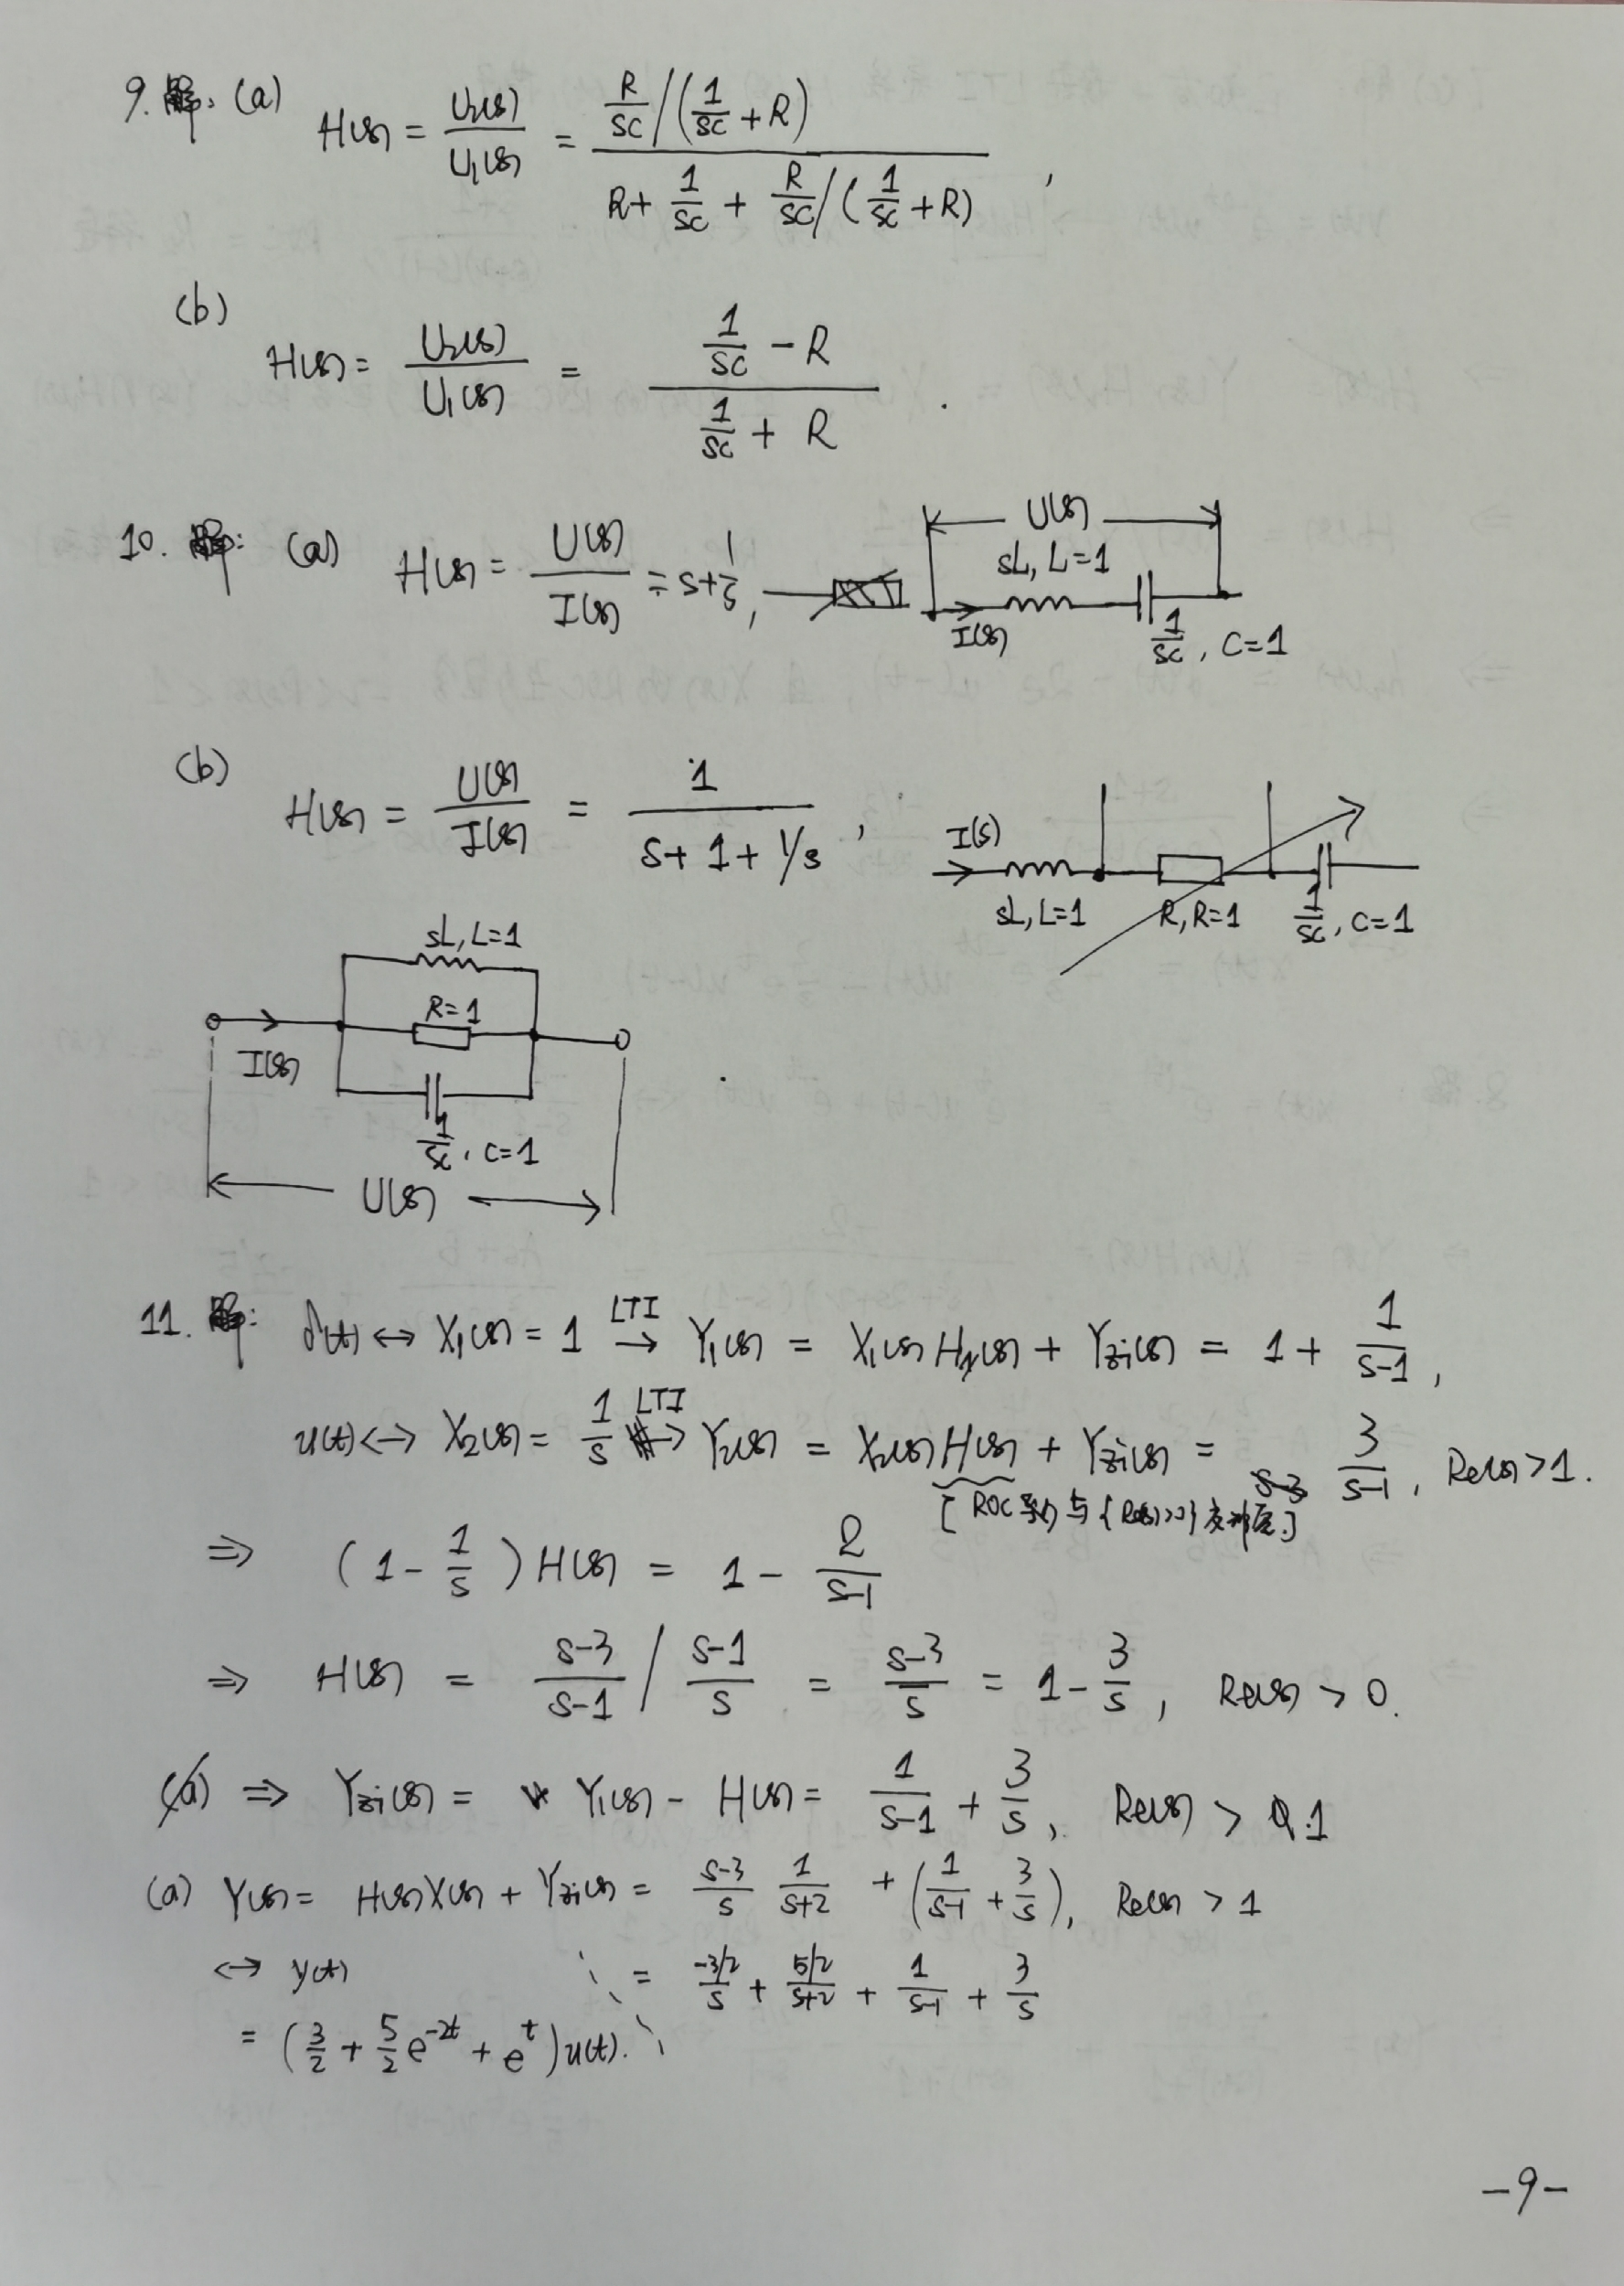 9. 解: (a) H(s) = U₂(s)/U₁(s) = [R/sC / (1/sC + R)] / [R + 1/sC + R/sC / (1/sC + R)] ,
(b) H(s) = U₂(s)/U₁(s) = (1/sC − R) / (1/sC + R) .
10. 解: (a) H(s) = U(s)/I(s) = s + 1/s ,
U(s)
sL, L=1
I(s)
1/sC , C=1
(b) H(s) = U(s)/I(s) = 1 / (s + 1 + 1/s) ,
I(s)
sL, L=1 R, R=1 1/sC , C=1
sL, L=1
R=1
I(s)
1/sC , C=1
U(s)
11. 解: δ(t) ↔ X₁(s) = 1 LTI→ Y₁(s) = X₁(s) H(s) + Yzi(s) = 1 + 1/(s−1) ,
u(t) ↔ X₂(s) = 1/s LTI→ Y₂(s) = X₂(s) H(s) + Yzi(s) = 3/(s−1) , Re(s) > 1 .
[ ROC 与 {Re(s)>0} ]
⇒ (1 − 1/s) H(s) = 1 − 2/(s−1)
⇒ H(s) = (s−3)/(s−1) / (s−1)/s = (s−3)/s = 1 − 3/s , Re(s) > 0 .
⇒ Yzi(s) = Y₁(s) − H(s) = 1/(s−1) + 3/s , Re(s) > 1
(a) Y(s) = H(s)X(s) + Yzi(s) = (s−3)/s 1/(s+2) + (1/(s−1) + 3/s) , Re(s) > 1
↔ y(t) = (−3/2)/s + (5/2)/(s+2) + 1/(s−1) + 3/s
= (3/2 + 5/2 e^(−2t) + e^t) u(t).
-9-